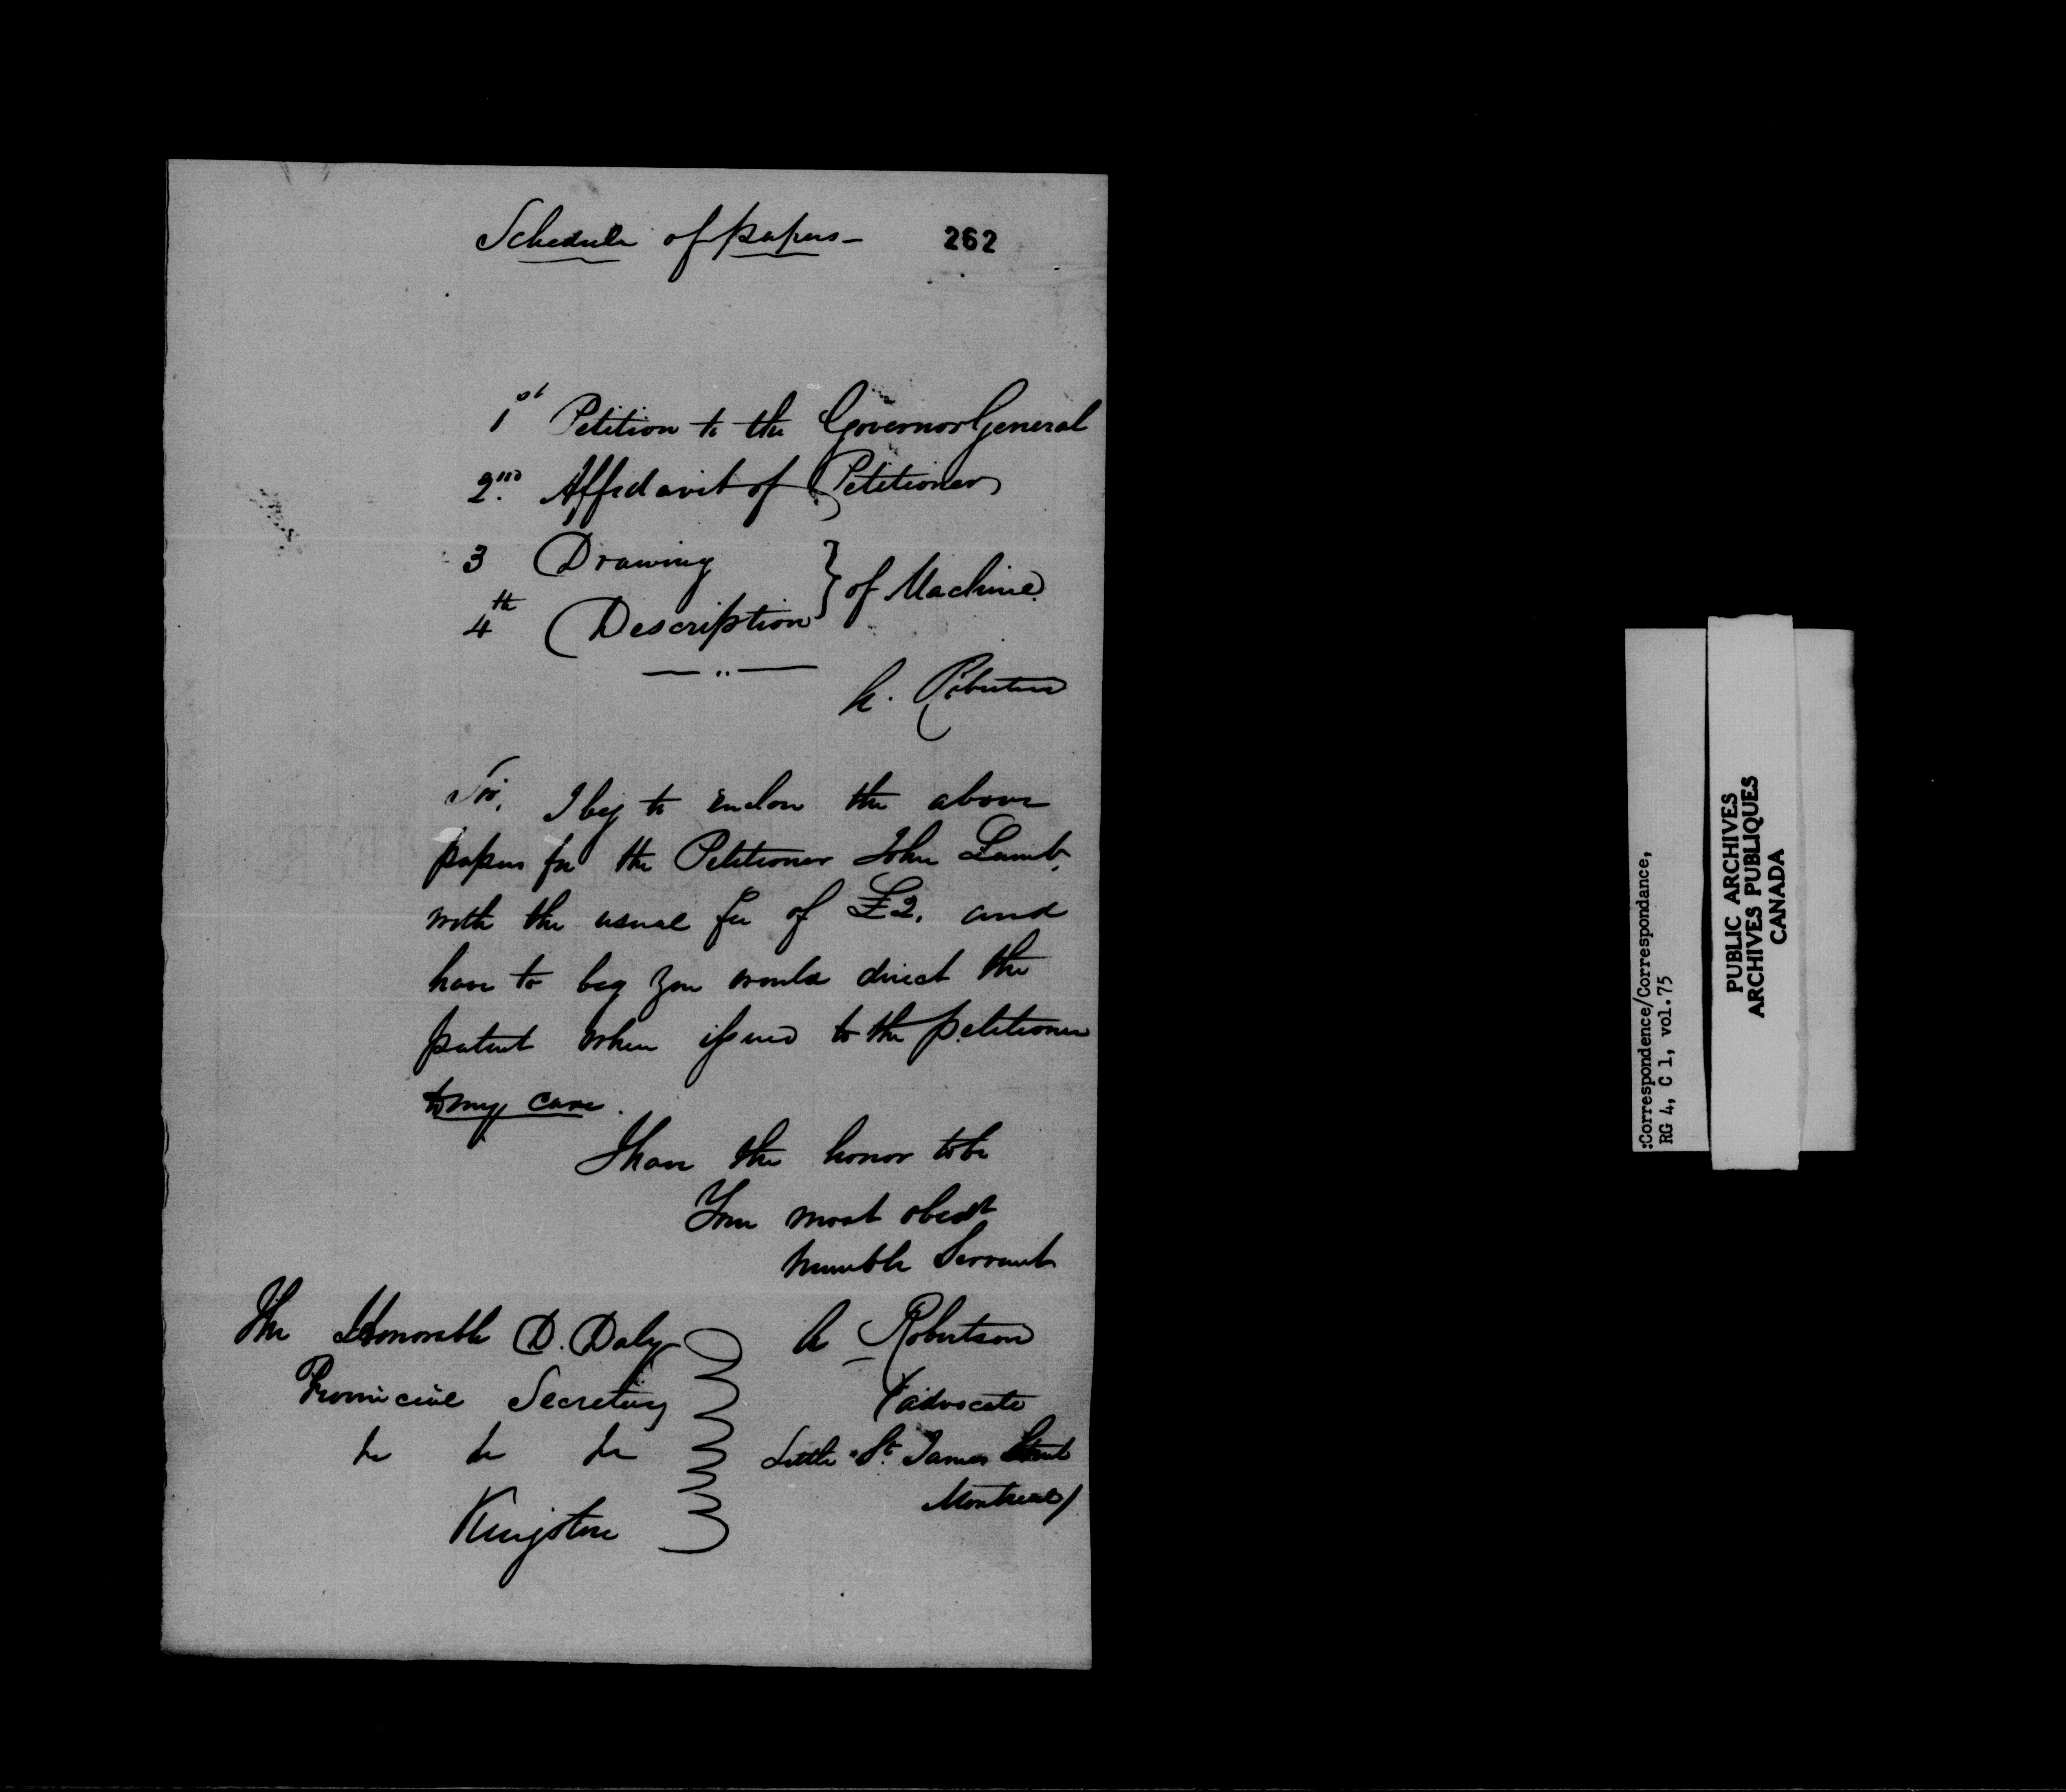 Schedule of papers -
262
1st Petition to the Governor General
2nd. Affidavit of Petitioner
3 Drawing
4th Description } of Machine.
A. Robertson
Sir, I beg to enclose the above
papers for the Petitioner John Lamb,
with the usual fee of £2, and
have to beg you would direct the
patent when issued to the petitioner
to my care.
I have the honor to be
Your most obedt
humble Servant
A Robertson
Advocate
Little St. James Street
Montreal/
The Honorable D. Daly
Provincial Secretary
&c &c &c
Kingston
:Correspondence/Correspondance,
RG 4, C 1, vol.75
PUBLIC ARCHIVES
ARCHIVES PUBLIQUES
CANADA